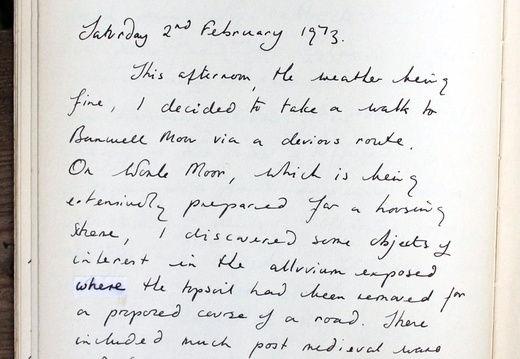 Saturday 2nd February 1973.
This afternoon, the weather being
fine, I decided to take a walk to
Banwell Moor via a devious route.
On Worle Moor, which is being
extensively prepared for a housing
scheme, I discovered some objects of
interest in the alluvium exposed
where the topsoil had been removed for
a proposed course of a road. These
included much post medieval ware